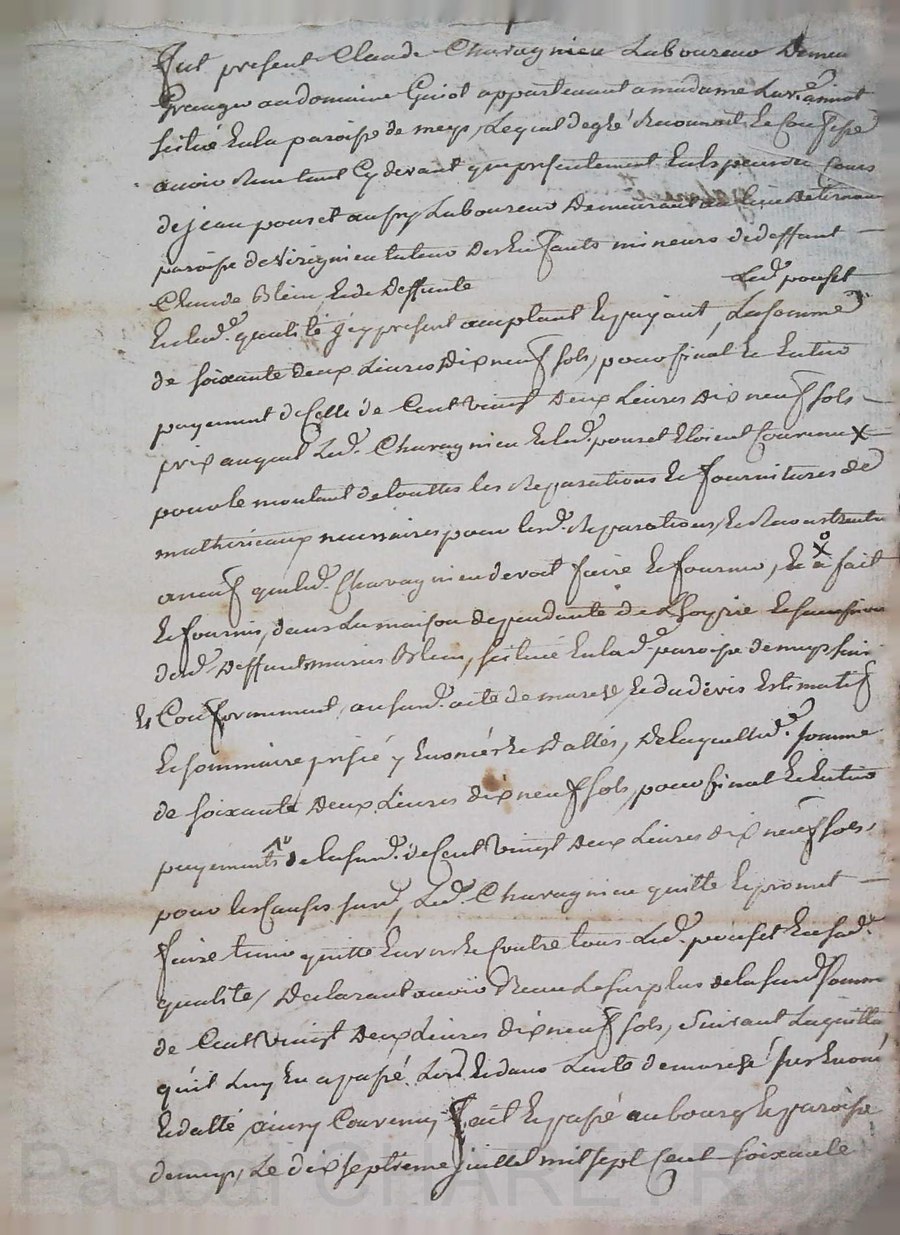 fut present Claude Charagnieu Laboureur Demeu
Granger au domaine Guiot appartenant a madame
scitué En la paroisse de meys, Lequel de gré Reconnoit Et Confesse
avoir Receu tant Cy devant que presentement En Espeuces Cours
de jean pouset aussy Laboureur Demeurant au Lieu
paroisse de Virignieu tuteur Des Enfants mineurs de deffunt
Claude Blein Et de Deffunte Led. pouset
En lad. qualité jcy present acceptant Et payant, La somme
de soixante deux Livres dix neuf sols, pour final Et Entier
payement de Celle de Cent vingt Deux Livres Dix neuf sols
prix auquel Led. Charagnieu Et led. pouset Etoient Convenux
pour le montant de touttes les Reparations Et fournitures de
matherieaux necessaires pour lesd. Reparations, Et
a neuf que led. Charagnieu devoit faire Et fournir, Et a fait
Et fourni, dans La maison dependante de L'hoyrie
dud. Deffunt Blein, scitué En lad. paroisse de meys
Et Conformement au susd. acte de marché Et du devis Estimatif
Et sommaire prisié y Enoncés Et Dattés, De laquelled. somme
de soixante Deux Livres dix neuf sols, pour final Et Entier
payements de la susd. de Cent Vingt Deux Livres dix neuf sols,
pour les Causes susd, Led. Charagnieu quitte Et promet
faire tenir quitte Envers Et Contre tous Led. pouset En sad.
qualité, Declarant avoir Receu Le surplus de la susd. somme
de Cent Vingt Deux Livres dix neuf sols, suivant La quitta
qu'il Luy En a passé Lors Et dans L'acte de marché sus Enoncé
Et datté ainsy Convenu, fait Et passé au bourg Et paroisse
de meys, Le dix septieme juillet mil sept Cent soixante
Pascal CHAREYRON